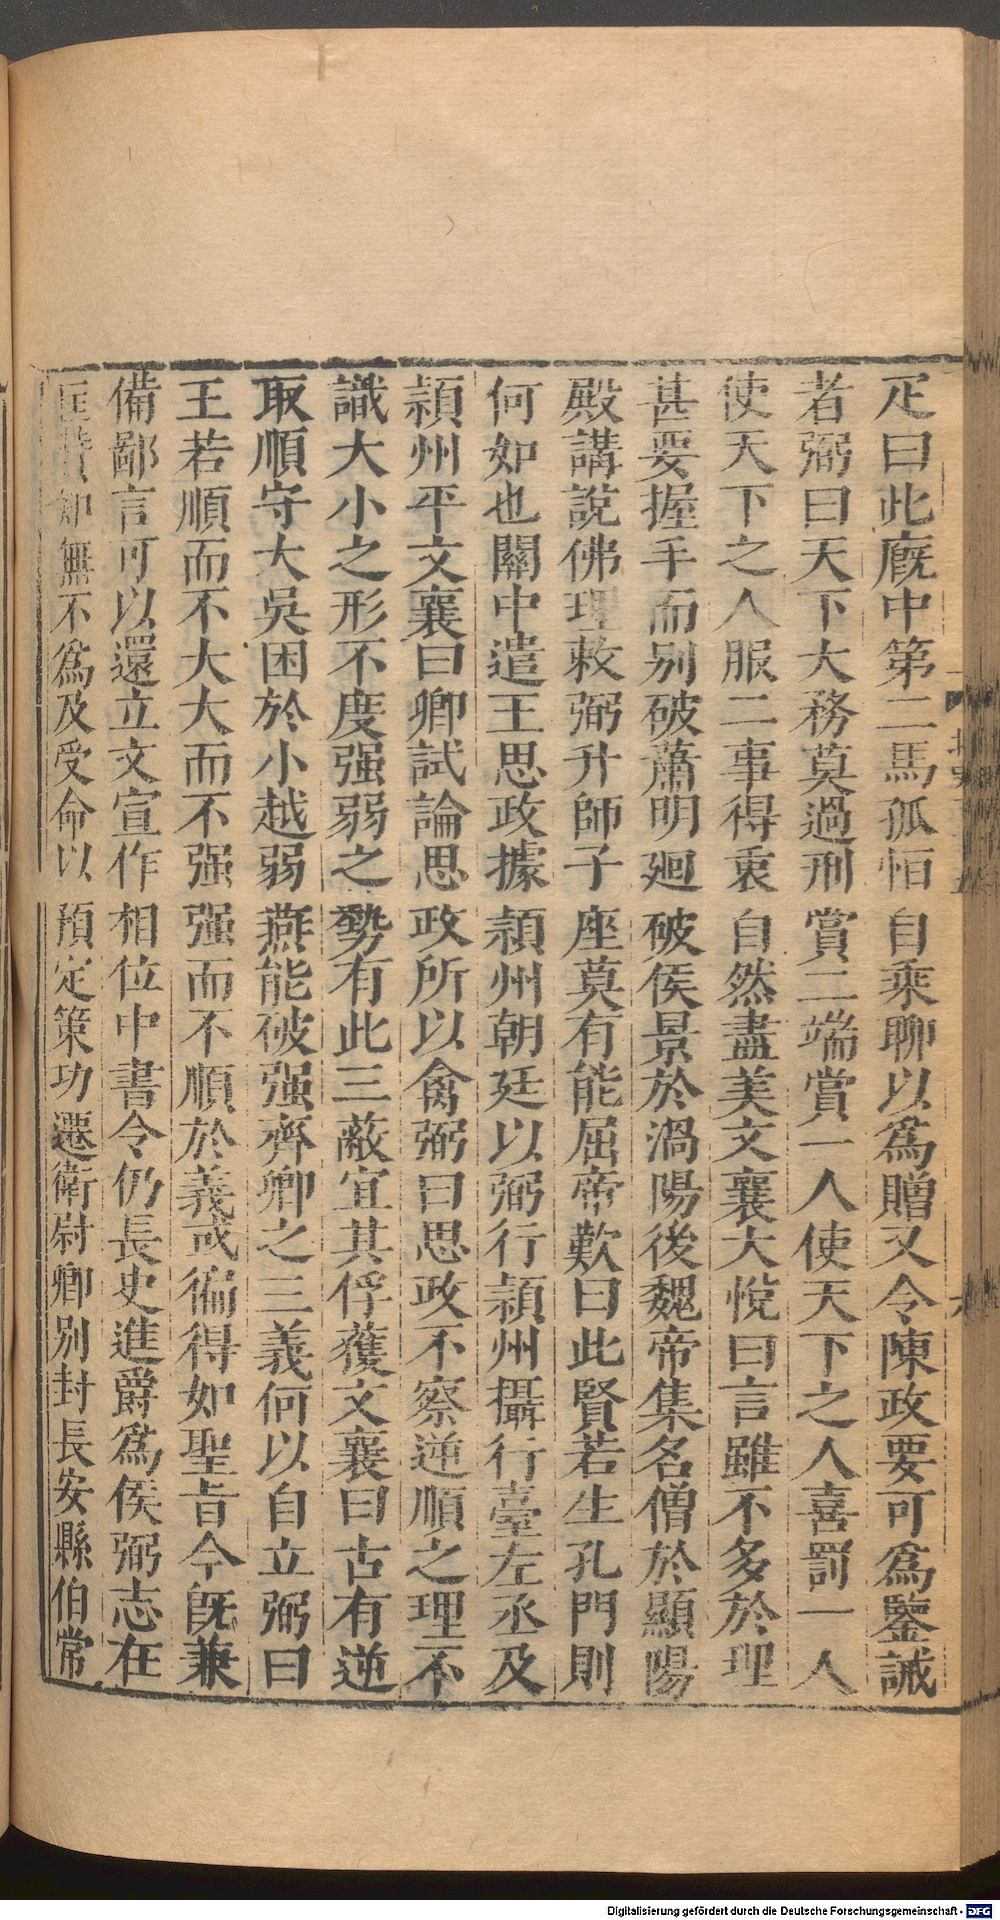 疋曰此廐中第二馬孤恒自乘聊以爲贈又令陳政要可爲鑒誡
者弼曰天下大務莫過刑賞二端賞一人使天下之人喜罰一人
使天下之人服二事得衷自然盡美文襄大悅曰言雖不多於理
甚要握手而别破蕭明廻破侯景於渦陽後魏帝集名僧於顯陽
殿講說佛理敕弼升師子座莫有能屈帝歎曰此賢若生孔門則
何如也關中遣王思政據頴州朝廷以弼行頴州攝行臺左丞及
頴州平文襄曰卿試論思政所以禽弼曰思政不察逆順之理不
識大小之形不度强弱之勢有此三蔽宜其俘獲文襄曰古有逆
取順守大吳困於小越弱燕能破强齊卿之三義何以自立弼曰
王若順而不大大而不强强而不順於義或偏得如聖旨今旣兼
備鄙言可以還立文宣作相位中書令仍長史進爵爲侯弼志在
匡贊知無不爲及受命以預定策功遷衛尉卿别封長安縣伯常
Digitalisierung gefördert durch die Deutsche Forschungsgemeinschaft - DFG